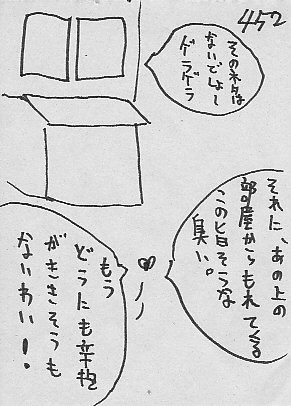 452
そのネタは
ないでしょー
ゲラゲラ
それに、あの上の
部屋からもれてくる
この旨そうな
臭い。
もう
どうにも辛抱
がききそうも
ないわい!